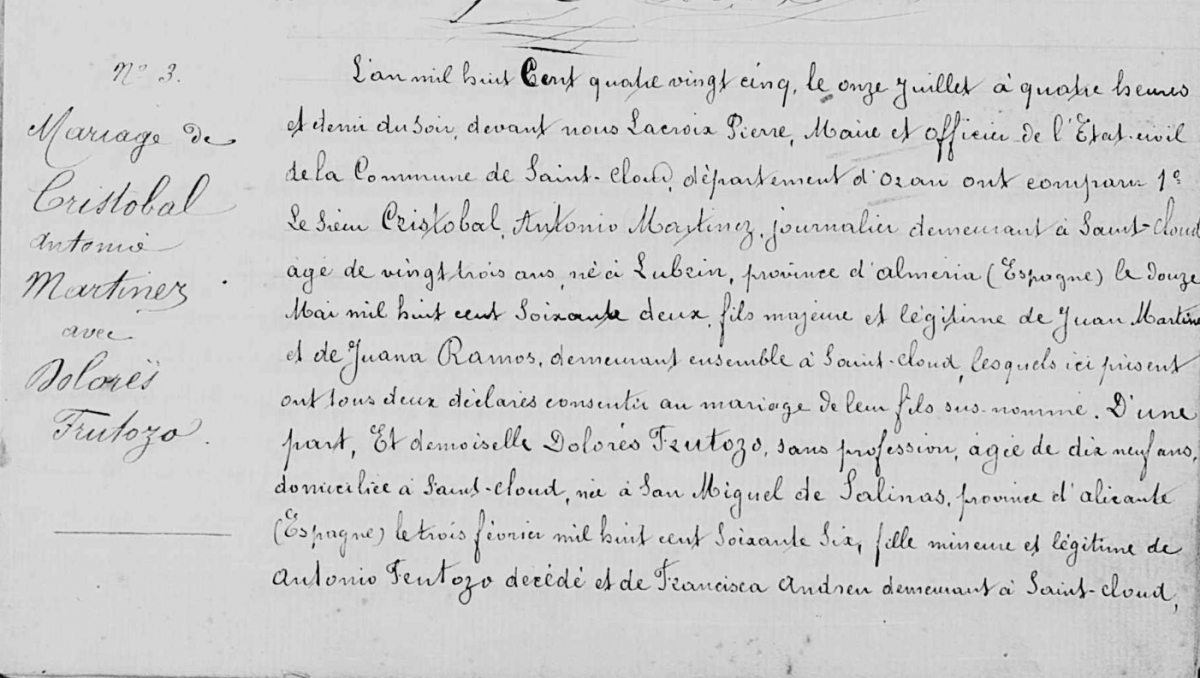 N° 3.
Mariage de
Cristobal
Antonio
Martinez
avec
Dolorès
Frutozo.
L'an mil huit Cent quatre vingt cinq, le onze Juillet à quatre heures
et demi du soir, devant nous Lacroix Pierre, Maire et officier de l'Etat-civil
de la Commune de Saint-Cloud, département d'Oran ont comparu 1°
Le Sieur Cristobal, Antonio Martinez, journalier demeurant à Saint-Cloud
âgé de vingt trois ans, né à Lubrin, province d'almeria (Espagne) le douze
Mai mil huit cent Soixante deux, fils majeure et légitime de Juan Martinez
et de Juana Ramos, demeurant ensemble à Saint-Cloud, lesquels ici présent
ont tous deux déclarés consentir au mariage de leur fils sus-nommé. D'une
part, Et demoiselle Dolorès Frutozo, sans profession, agée de dix neuf ans,
domiciliée à Saint-Cloud, née à San Miguel de Salinas, province d'alicante
(Espagne) le trois février mil huit cent Soixante Six, fille mineure et légitime de
Antonio Frutozo decédé et de Francisca Andreu demeurant à Saint-Cloud,